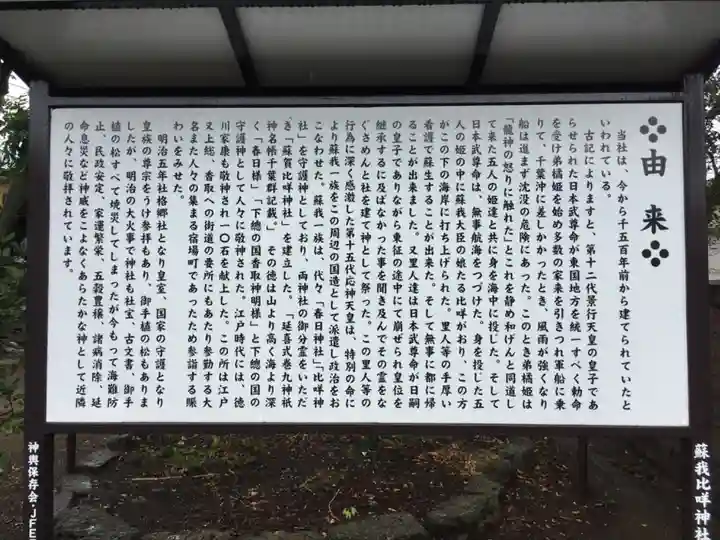 由来
当社は、今から千五百年前から建てられていたと
いわれている。
古記によりますと、第十二代景行天皇の皇子であ
らせられた日本武尊命が東国地方を統一すべく勅命
を受け弟橘姫を始め多数の家来を引きつれ軍船に乗
りて、千葉沖に差しかかったとき、風雨が強くなり
船は進まず沈没の危険にあった。このとき弟橘姫は
「龍神の怒りに触れた」とこれを静め和げんと同道し
て来た五人の姫達と共に身を海中に投じた。そして
日本武尊命は、無事航海をつづけた。身を投じた五
人の姫の中に蘇我大臣の娘たる比咩がおり、この方
がこの下の海岸に打ち上げられた。里人等の手厚い
看護で蘇生することが出来た。そして無事に都に帰
ることが出来ました。又里人達は日本武尊命が日嗣
の皇子でありながら東征の途中にて崩ぜられ皇位を
継承するに及ばなかった事を聞き及んでその霊をな
ぐさめんと社を建て神として祭った。この里人等の
行為に深く感激した第十五代応神天皇は、特別の命に
より蘇我一族をこの周辺の国造として派遣し政治をお
こなわせた。蘇我一族は、代々「春日神社」「比咩神
社」を守護神としており、両神社の御分霊をいただ
き「蘇賀比咩神社」を建立した。「延喜式巻九神祇
神名帳千葉群記載」。その徳は山より高く海より深
く、「春日様」「下総の国香取神明様」と下総の国の
守護神として人々に敬神された。江戸時代には、徳
川家康も敬神され一〇石を献上した。この所は江戸
又上総、香取への街道の要所にもあたり参勤する大
名また人々の集まる宿場町であったため参詣する賑
わいをみせた。
明治五年社格郷社となり皇室、国家の守護となり
皇族の尊宗をうけ参拝もあり、御手植の松もありま
したが、明治の大火事で神社も社宝、古文書、御手
植の松すべて焼災してしまったが今もって海難防
止、民政安定、家運繁栄、五穀豊穣、諸病消除、延
命息災など神威をこよなくあらたかな神として近隣
の人々に敬拝されています。
蘇我比咩神社
神輿保存会・JFE